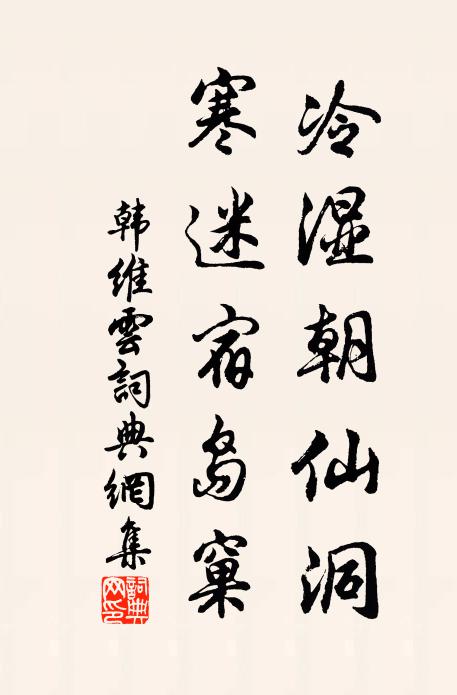 冷湿朝仙洞
寒迷宿岛窠
韩維雲詞典網集
詞典网印